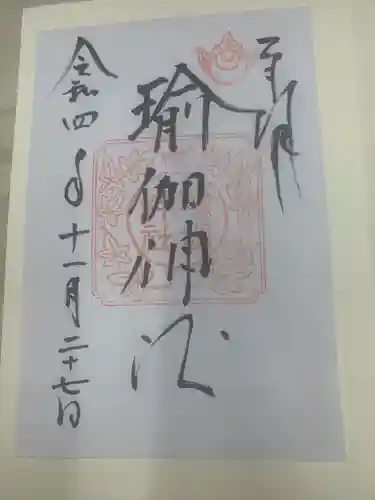 奉拝
瑜伽神社
令和四年十一月二十七日